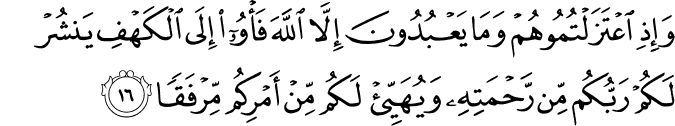 وَإِذِ ٱعْتَزَلْتُمُوهُمْ وَمَا يَعْبُدُونَ إِلَّا ٱللَّهَ فَأْوُۥٓا۟ إِلَى ٱلْكَهْفِ يَنشُرْ
لَكُمْ رَبُّكُم مِّن رَّحْمَتِهِۦ وَيُهَيِّئْ لَكُم مِّنْ أَمْرِكُم مِّرْفَقًا ١٦